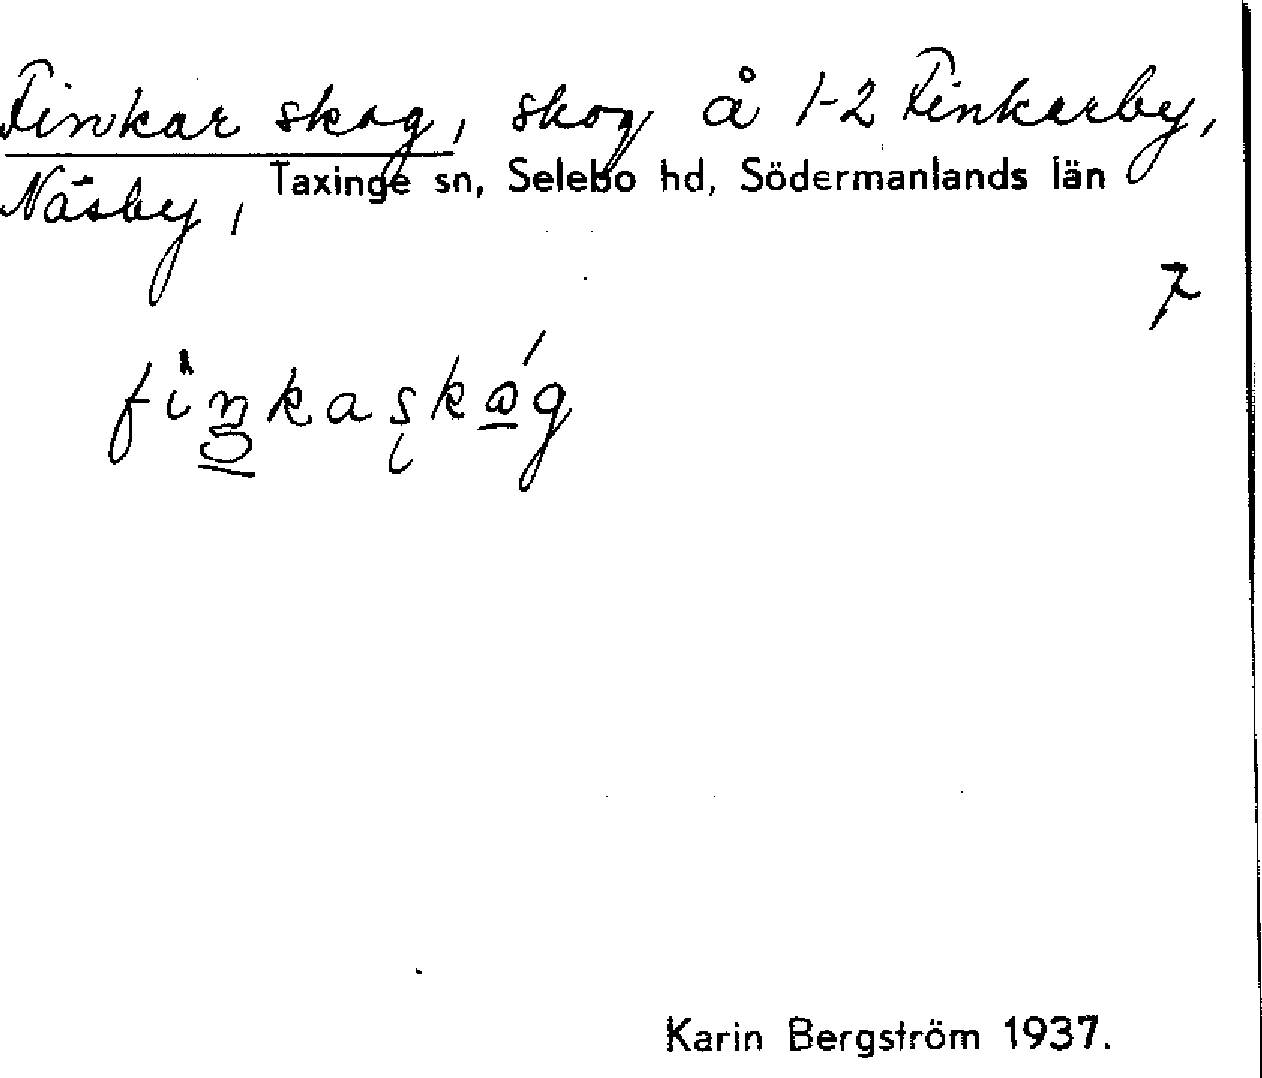 Finkar skog, skog å 1-2 Finkarby,
Näsby, Taxinge sn, Selebo hd, Södermanlands län
7
Karin Bergström 1937.